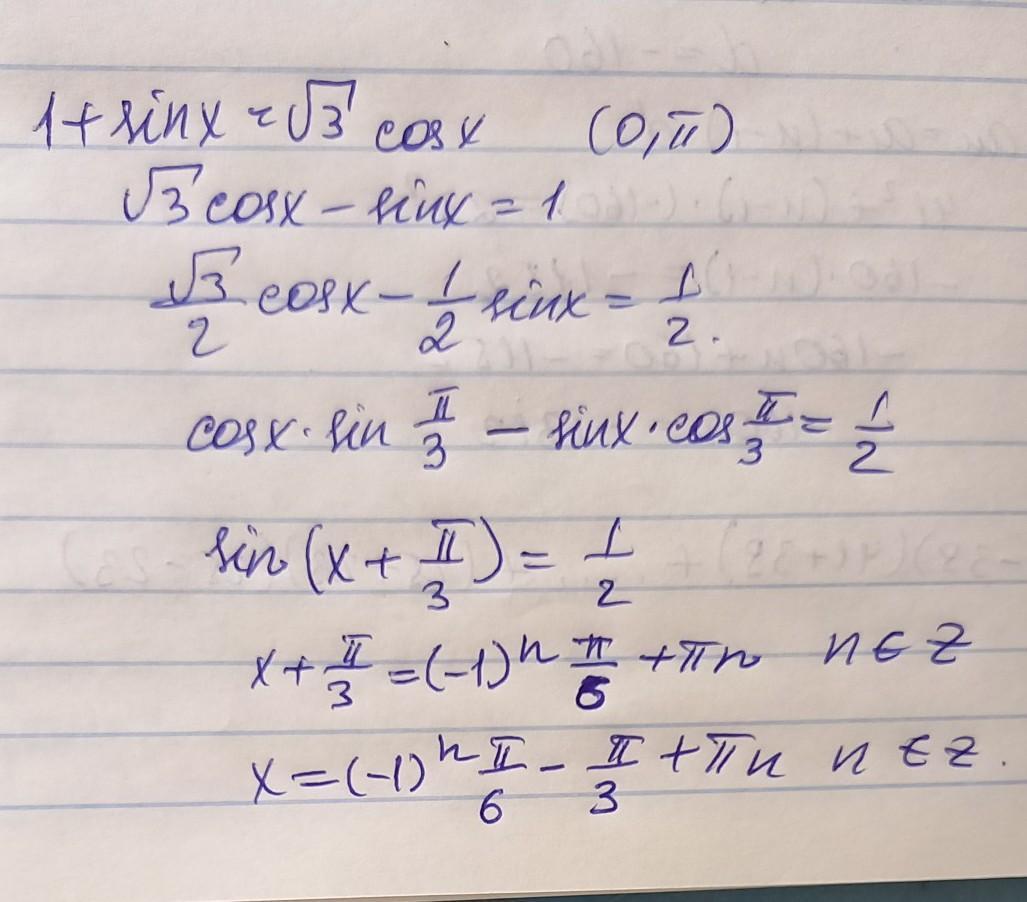 1+sinx=√3 cosx (0,π)
√3cosx-sinx=1
√3/2 cosx-1/2 sinx=1/2.
cosx·sin π/3 - sinx·cos π/3 = 1/2
sin(x+π/3)=1/2
x+π/3=(-1)^n π/6+πn n∈Z
x=(-1)^n π/6-π/3+πn n∈Z.